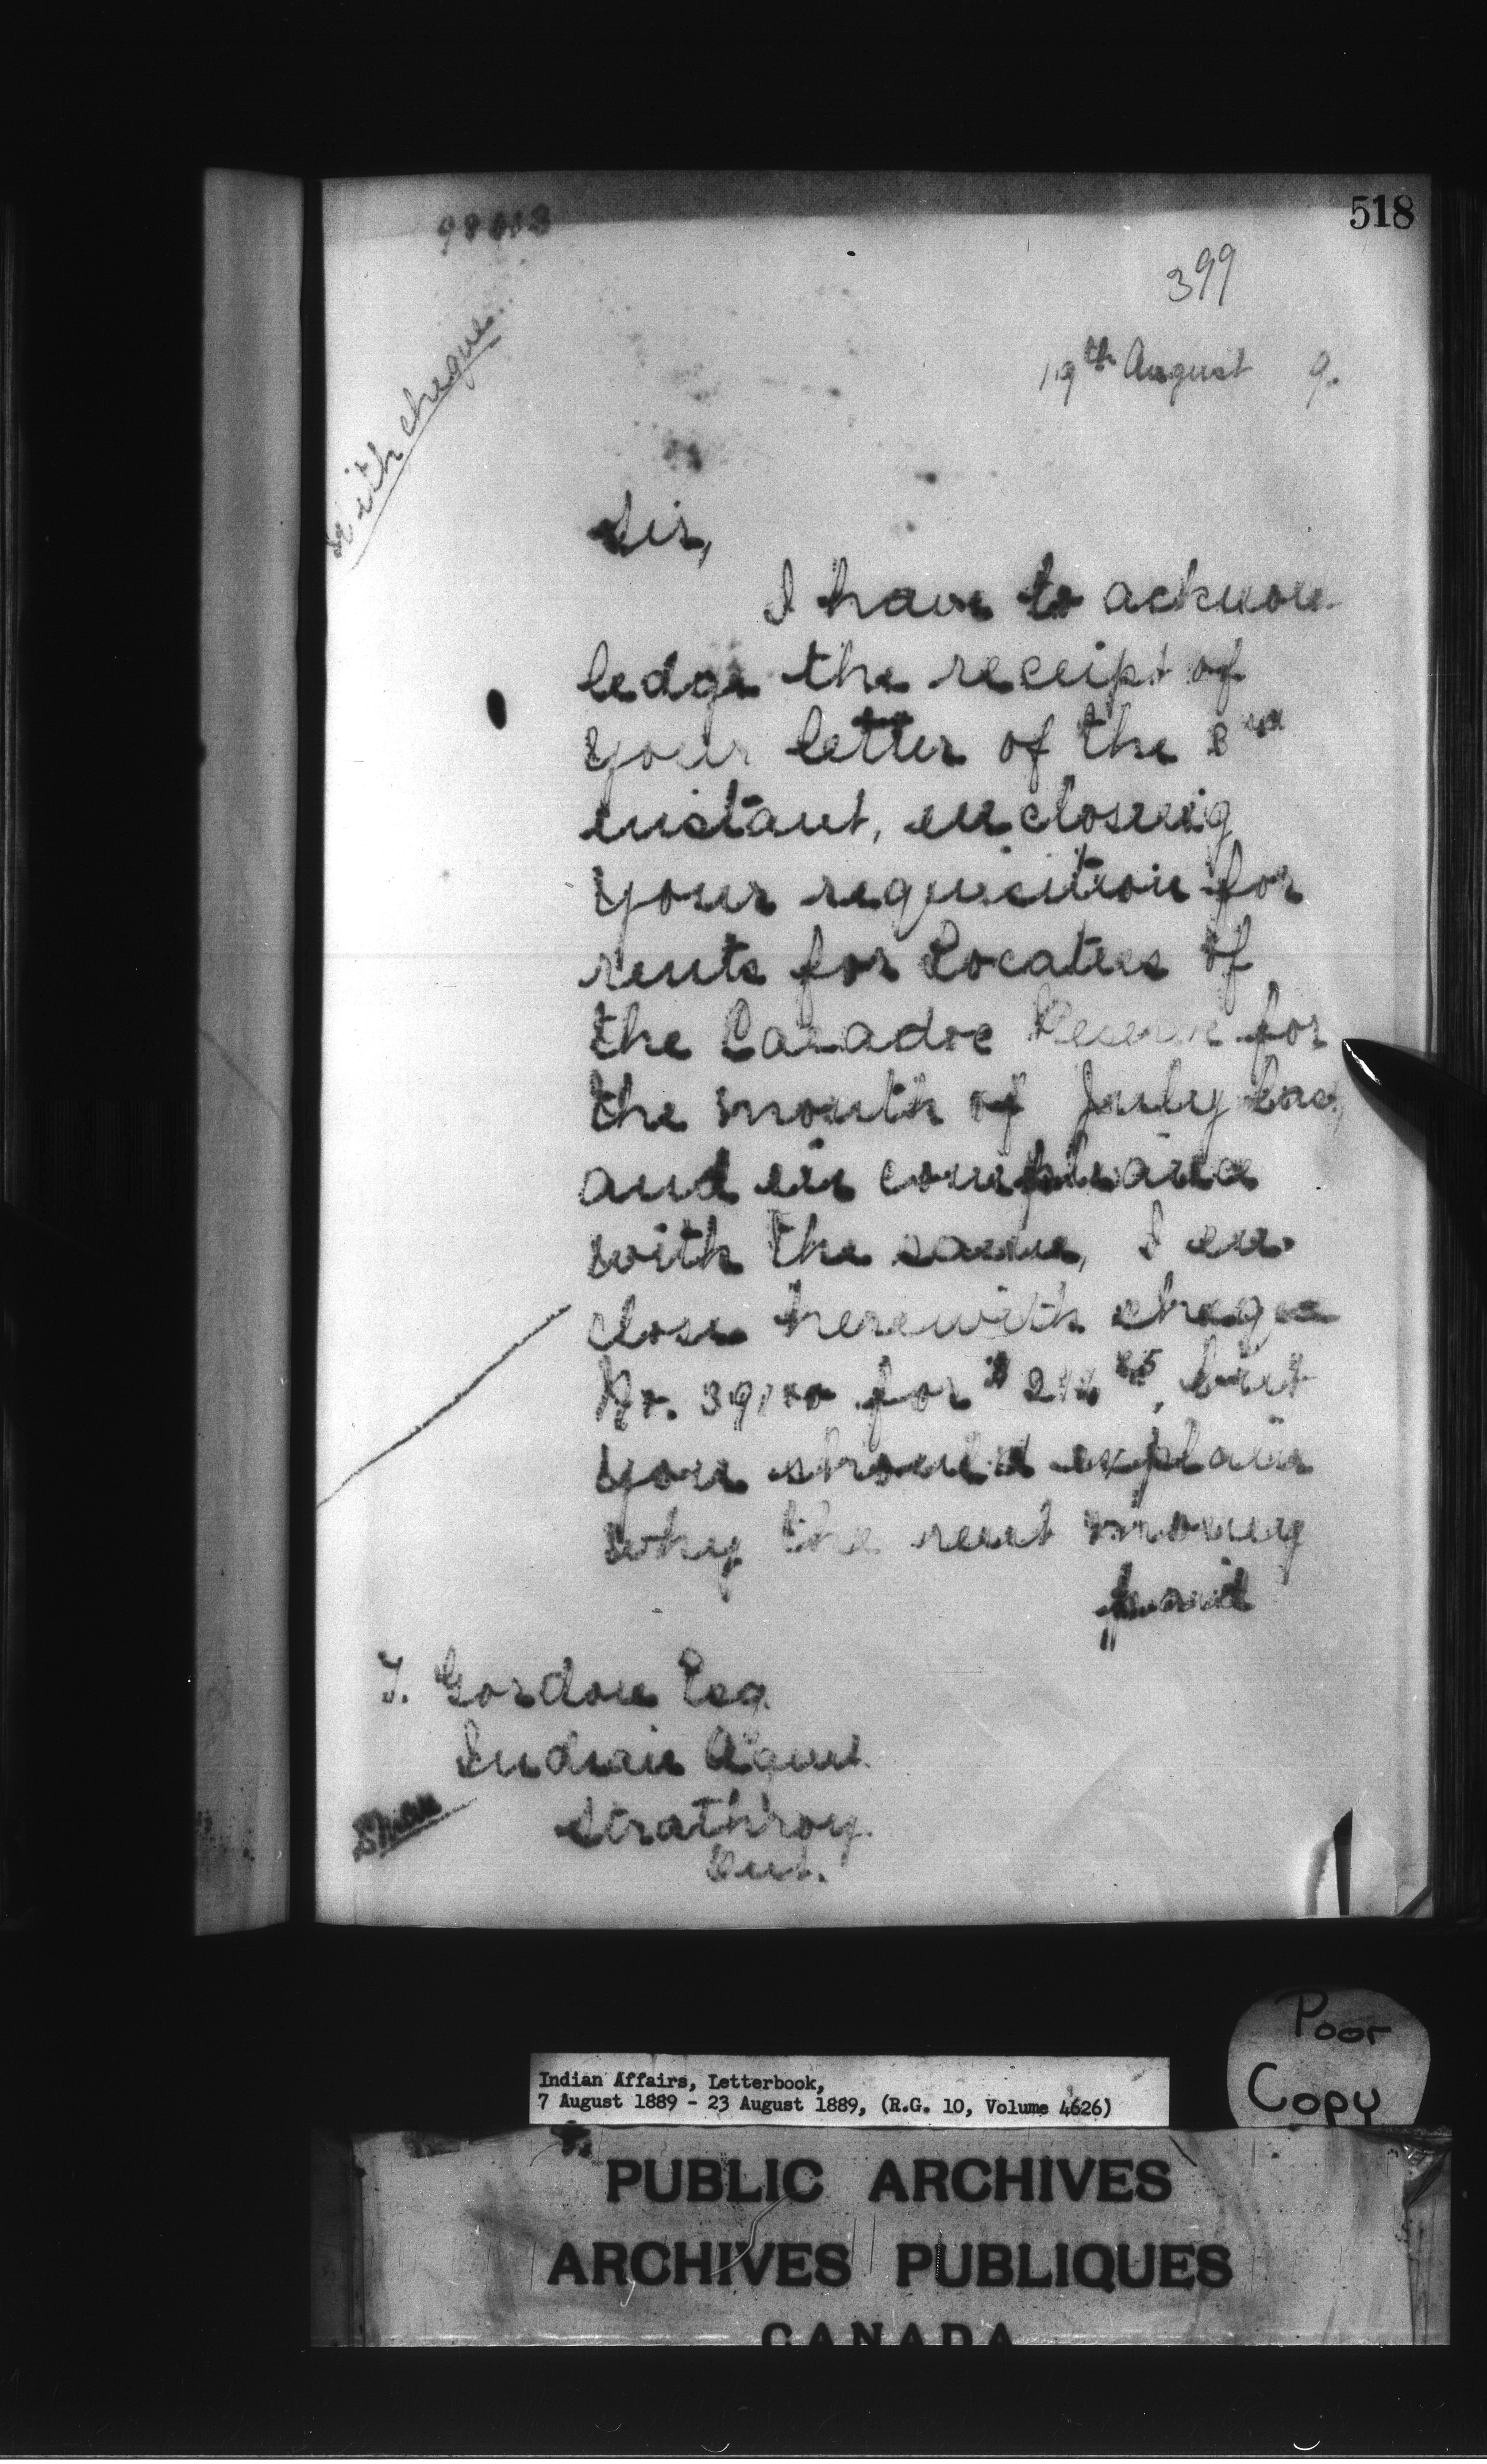 518
399
19th August 9.
With cheque
Sir,
I have to acknow
ledge the receipt of
your letter of the
instant, enclosing
your requisition for
rents for Locatees of
the Caradoc Reserve for
the month of July last,
and in compliance
with the same, I en-
close herewith cheque
No. for $ , but
you should explain
why the rent money
paid
T. Gordon Esq.
Indian Agent
Strathroy.
Ont.
Poor
Copy
Indian Affairs, Letterbook,
7 August 1889 - 23 August 1889, (R.G. 10, Volume 4626)
PUBLIC ARCHIVES
ARCHIVES PUBLIQUES
CANADA